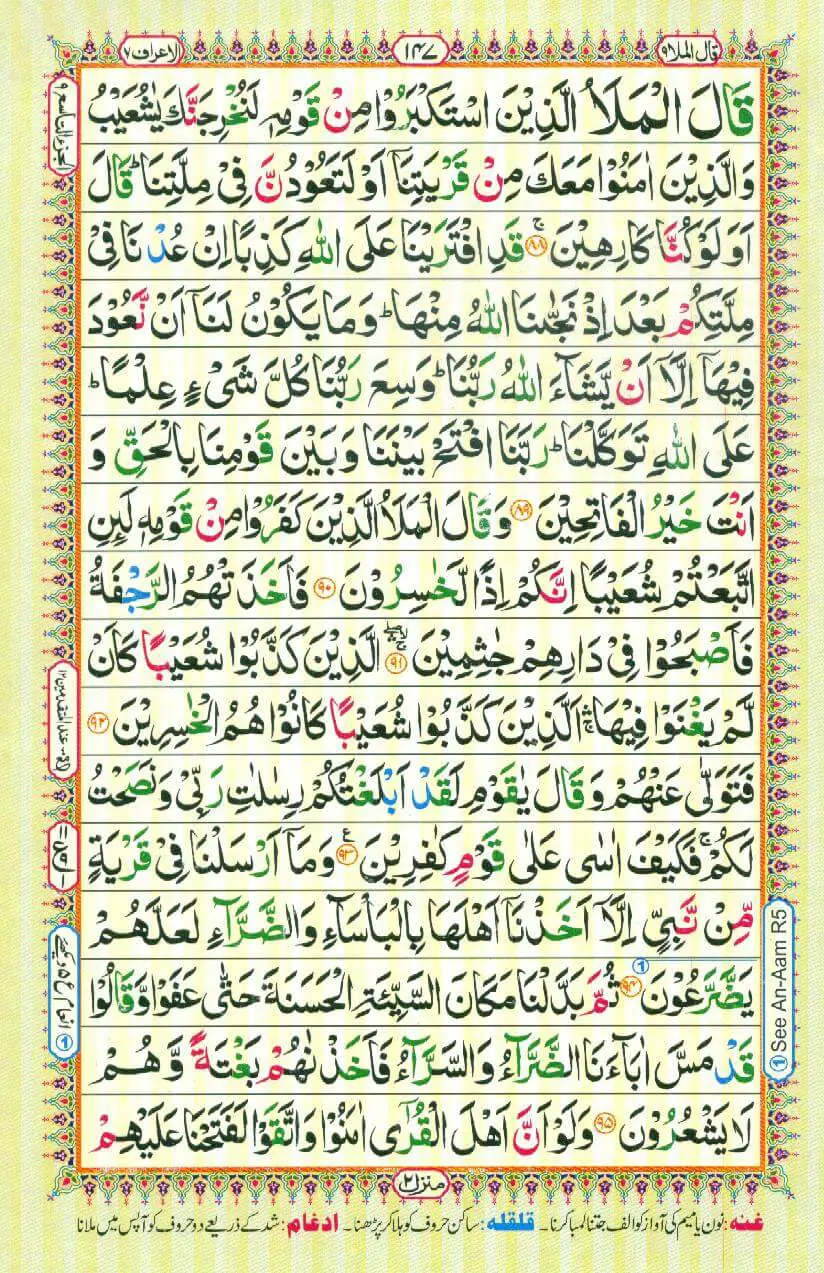 قال الملا ۹
۱۴۷
الاعراف ۷
قَالَ الْمَلَاُ الَّذِیْنَ اسْتَكْبَرُوْا مِنْ قَوْمِهٖ لَنُخْرِجَنَّكَ یٰشُعَیْبُ
وَالَّذِیْنَ اٰمَنُوْا مَعَكَ مِنْ قَرْیَتِنَاۤ اَوْ لَتَعُوْدُنَّ فِیْ مِلَّتِنَا ؕ قَالَ
اَوَ لَوْ كُنَّا كَارِهِیْنَ ۚ ﴿۸۸﴾ قَدِ افْتَرَیْنَا عَلَی اللّٰهِ كَذِبًا اِنْ عُدْنَا فِیْ
مِلَّتِكُمْ بَعْدَ اِذْ نَجّٰىنَا اللّٰهُ مِنْهَا ؕ وَمَا یَكُوْنُ لَنَاۤ اَنْ نَّعُوْدَ
فِیْهَاۤ اِلَّاۤ اَنْ یَّشَآءَ اللّٰهُ رَبُّنَا ؕ وَسِعَ رَبُّنَا كُلَّ شَیْءٍ عِلْمًا ؕ
عَلَی اللّٰهِ تَوَكَّلْنَا ؕ رَبَّنَا افْتَحْ بَیْنَنَا وَبَیْنَ قَوْمِنَا بِالْحَقِّ وَ
اَنْتَ خَیْرُ الْفَاتِحِیْنَ ﴿۸۹﴾ وَقَالَ الْمَلَاُ الَّذِیْنَ كَفَرُوْا مِنْ قَوْمِهٖ لَىِٕنِ
اتَّبَعْتُمْ شُعَیْبًا اِنَّكُمْ اِذًا لَّخٰسِرُوْنَ ﴿۹۰﴾ فَاَخَذَتْهُمُ الرَّجْفَةُ
فَاَصْبَحُوْا فِیْ دَارِهِمْ جٰثِمِیْنَ ﴿۹۱﴾ الَّذِیْنَ كَذَّبُوْا شُعَیْبًا كَاَنْ
لَّمْ یَغْنَوْا فِیْهَا ۛۚ اَلَّذِیْنَ كَذَّبُوْا شُعَیْبًا كَانُوْا هُمُ الْخٰسِرِیْنَ ﴿۹۲﴾
فَتَوَلّٰی عَنْهُمْ وَقَالَ یٰقَوْمِ لَقَدْ اَبْلَغْتُكُمْ رِسٰلٰتِ رَبِّیْ وَنَصَحْتُ
لَكُمْ ۚ فَكَیْفَ اٰسٰی عَلٰی قَوْمٍ كٰفِرِیْنَ ﴿۹۳﴾ ع وَمَاۤ اَرْسَلْنَا فِیْ قَرْیَةٍ
مِّنْ نَّبِیٍّ اِلَّاۤ اَخَذْنَاۤ اَهْلَهَا بِالْبَاْسَآءِ وَالضَّرَّآءِ لَعَلَّهُمْ
یَضَّرَّعُوْنَ ﴿۹۴﴾ ① ثُمَّ بَدَّلْنَا مَكَانَ السَّیِّئَةِ الْحَسَنَةَ حَتّٰی عَفَوْا وَّقَالُوْا
قَدْ مَسَّ اٰبَآءَنَا الضَّرَّآءُ وَالسَّرَّآءُ فَاَخَذْنٰهُمْ بَغْتَةً وَّهُمْ
لَا یَشْعُرُوْنَ ﴿۹۵﴾ وَلَوْ اَنَّ اَهْلَ الْقُرٰۤی اٰمَنُوْا وَاتَّقَوْا لَفَتَحْنَا عَلَیْهِمْ
الجزء التاسع ۹
① انعام ع ۵ دیکھئے
① See An-Aam R5
منزل ۲
غنه: نون یا میم کی آواز کو الف جتنا لمبا کرنا۔ قلقله: ساکن حروف کو ہلا کر پڑھنا۔ ادغام: شد کے ذریعے دو حروف کو آپس میں ملانا